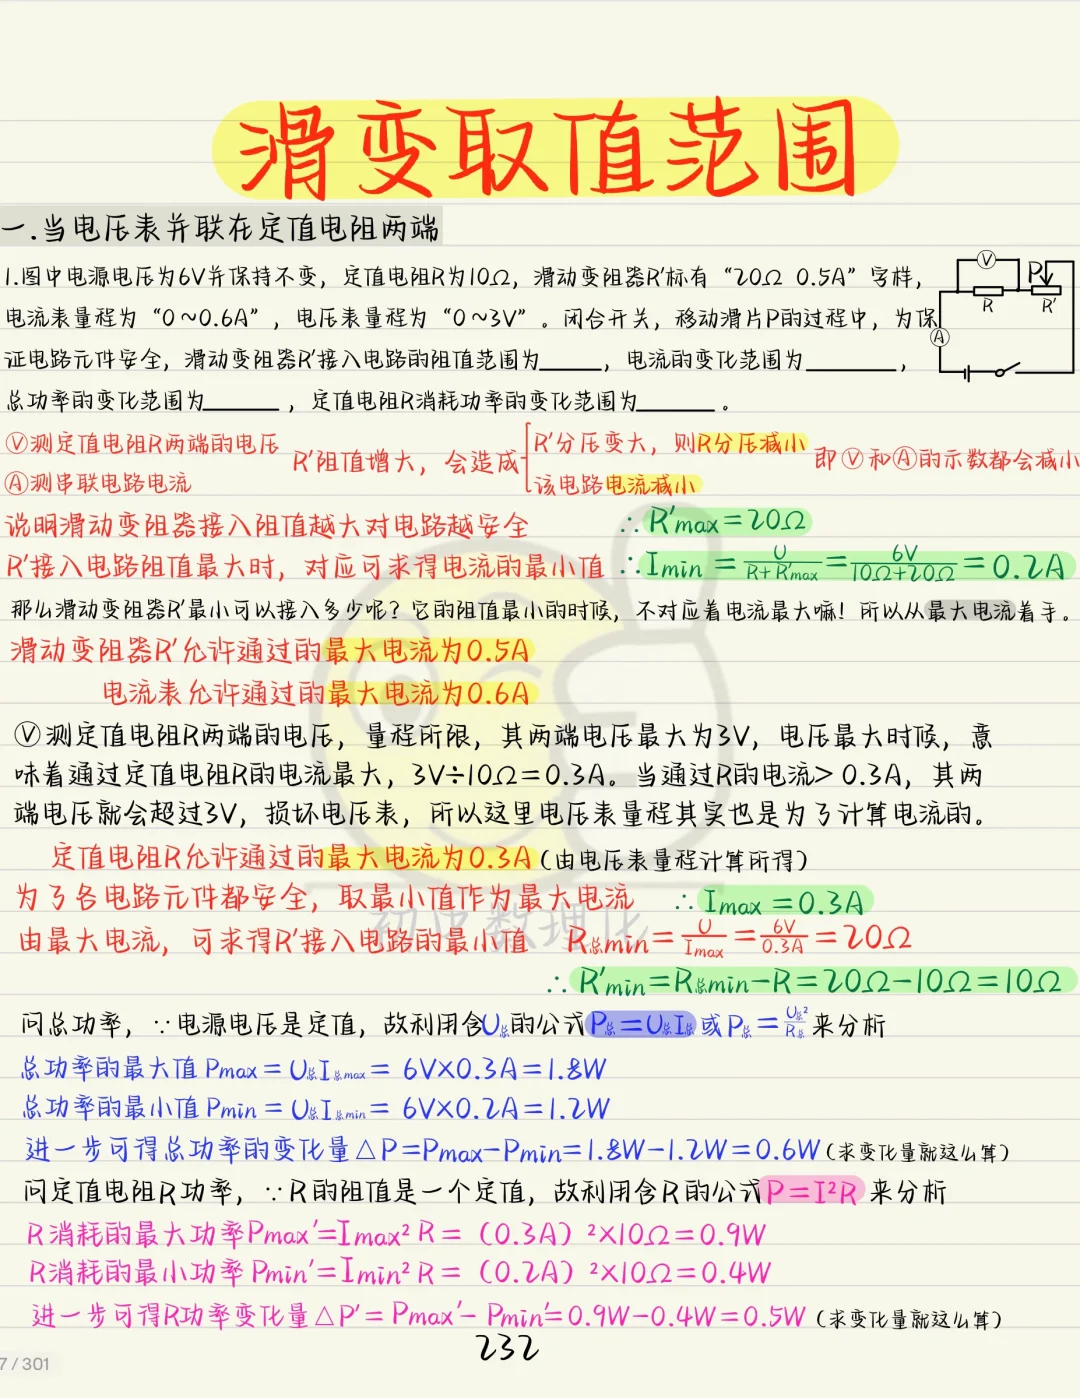 滑变取值范围
一.当电压表并联在定值电阻两端
1.图中电源电压为6V并保持不变，定值电阻R为10Ω，滑动变阻器R′标有“20Ω 0.5A”字样，
电流表量程为“0~0.6A”，电压表量程为“0~3V”。闭合开关，移动滑片P的过程中，为保
证电路元件安全，滑动变阻器R′接入电路的阻值范围为_____，电流的变化范围为_______，
总功率的变化范围为______，定值电阻R消耗功率的变化范围为______。
V
P
R
R′
A
Ⓥ测定值电阻R两端的电压
Ⓐ测串联电路电流
R′阻值增大，会造成
R′分压变大，则R分压减小
该电路电流减小
即Ⓥ和Ⓐ的示数都会减小
说明滑动变阻器接入阻值越大对电路越安全 ∴R′max=20Ω
R′接入电路阻值最大时，对应可求得电流的最小值 ∴Imin=U/(R+R′max)=6V/(10Ω+20Ω)=0.2A
那么滑动变阻器R′最小可以接入多少呢？它的阻值最小的时候，不对应着电流最大嘛！所以从最大电流着手。
滑动变阻器R′允许通过的最大电流为0.5A
电流表允许通过的最大电流为0.6A
Ⓥ测定值电阻R两端的电压，量程所限，其两端电压最大为3V，电压最大时候，意
味着通过定值电阻R的电流最大，3V÷10Ω=0.3A。当通过R的电流>0.3A，其两
端电压就会超过3V，损坏电压表，所以这里电压表量程其实也是为了计算电流的。
定值电阻R允许通过的最大电流为0.3A（由电压表量程计算所得）
为了各电路元件都安全，取最小值作为最大电流 ∴Imax=0.3A
初中数理化
由最大电流，可求得R′接入电路的最小值 R总min=U/Imax=6V/0.3A=20Ω
∴R′min=R总min-R=20Ω-10Ω=10Ω
问总功率，∵电源电压是定值，故利用含U总的公式P总=U总I总或P总=U总²/R总来分析
总功率的最大值Pmax=U总I总max=6V×0.3A=1.8W
总功率的最小值Pmin=U总I总min=6V×0.2A=1.2W
进一步可得总功率的变化量△P=Pmax-Pmin=1.8W-1.2W=0.6W（求变化量就这么算）
问定值电阻R功率，∵R的阻值是一个定值，故利用含R的公式P=I²R来分析
R消耗的最大功率Pmax′=Imax²R=（0.3A）²×10Ω=0.9W
R消耗的最小功率Pmin′=Imin²R=（0.2A）²×10Ω=0.4W
进一步可得R功率变化量△P′=Pmax′-Pmin′=0.9W-0.4W=0.5W（求变化量就这么算）
232
7/301